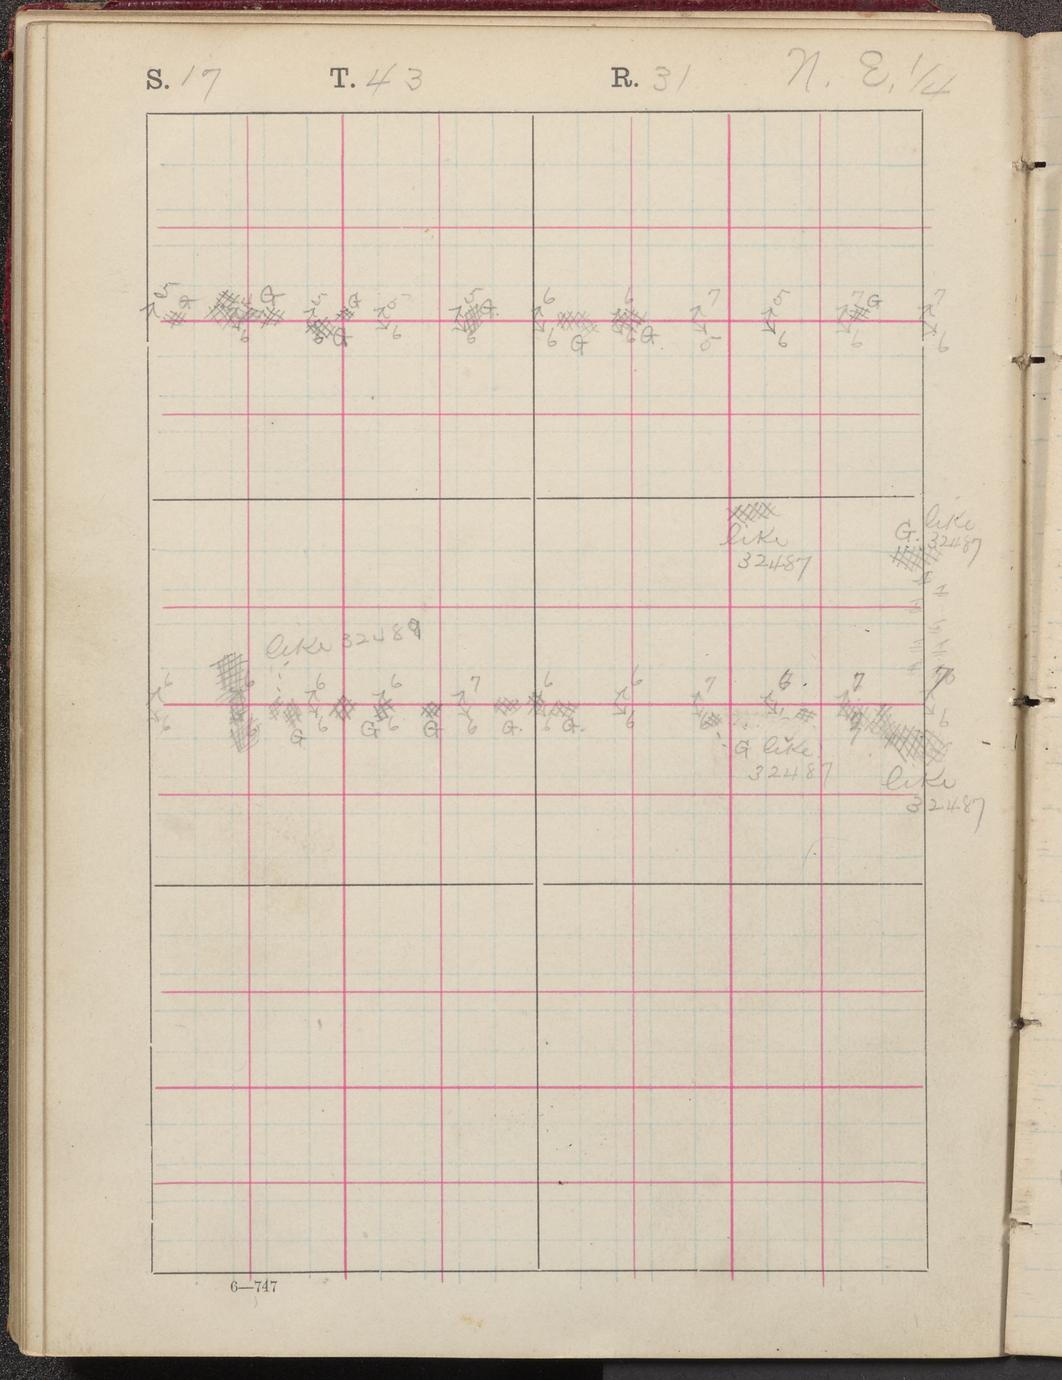 S. 17 T. 43 R. 31 N. E. 1/4
5 G 4 G 5 G 5 5 G. 6 6 7 5 7 G 7
6 5 G 6 6 6 G 6 G. 5 6 6 6
like
32487
G. like
32487
like 32489
6 6 6 6 7 6 6 7 6. 7 7
6 G 6 G 6 G 6 G. 6 G. 6 6 7 6
G like
32487
like
32487
6—747